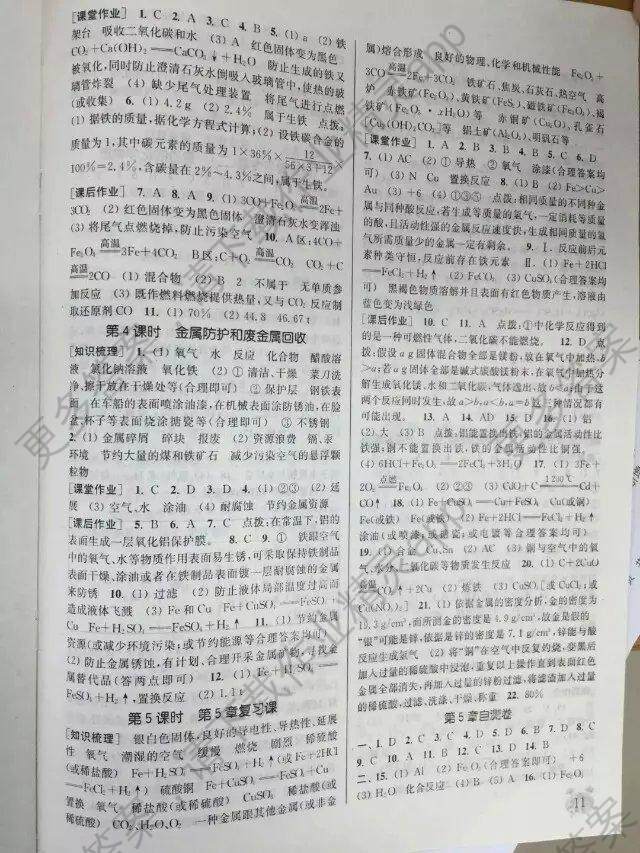 [课堂作业] 1. C 2. A 3. C 4. B 5. (1) a (2) 铁
架台 吸收二氧化碳和水 (3) A 红色固体变为黑色
CO₂+Ca(OH)₂══CaCO₃↓+H₂O 防止生成的铁又
被氧化,同时防止澄清石灰水倒吸入玻璃管中,使热的玻
璃管炸裂 (4) 缺少尾气处理装置 将尾气进行点燃
(或收集) 6. (1) 4.2g (2) 2.4% 属于生铁 点拨:
(1) 据铁的质量,据化学方程式计算;(2) 设铁碳合金的
质量为1,其中碳元素的质量为1×36%×12/(56×3+12)
100%=2.4%,含碳量在2%~4.3%之间,属于生铁.
[课后作业] 7. A 8. A 9. (1) 3CO+Fe₂O₃ 高温══ 2Fe+
3CO₂ (2) 红色固体变为黑色固体 澄清石灰水变浑浊
(3) 将尾气点燃烧掉,防止污染空气 10. A区:4CO+
Fe₃O₄ 高温══ 3Fe+4CO₂ B区:C+O₂ 高温══ CO₂ CO₂+C
高温══ 2CO (1) 混合物 (2) B 2 不属于 无单质参
加反应 (3) 既作燃料燃烧提供热量,又与CO₂反应制
取还原剂CO 11. (1) 70% (2) 44.8 46.67t
第4课时 金属防护和废金属回收
[知识梳理] 1. (1) 氧气 水 反应 化合物 醋酸溶
液 氯化钠溶液 氧化铁 (2) ① 清洁、干燥 菜刀洗
净,擦干放在干燥处等(合理即可) ② 保护层 钢铁表
面 在车船的表面喷涂油漆,在机械表面涂防锈油,在脸
盆、杯子等表面烧涂搪瓷等(合理即可) ③ 不锈钢
2. (1) 金属碎屑 碎块 报废 (2) 资源浪费 镉、汞
环境 节约大量的煤和铁矿石 减少污染空气的悬浮颗
粒物
[课堂作业] 1. C 2. D 3. D 4. (1) ②③ (2) 延
展 (3) 空气、水 涂油 (4) 耐腐蚀 节约金属资源
[课后作业] 5. B 6. A 7. C 点拨:在常温下,铝的
表面生成一层氧化铝保护膜. 8. C 9. ① 铁跟空气
中的氧气、水等物质作用表面易生锈,可采取保持铁制品
表面干燥、涂油或者在铁制品表面镀一层耐腐蚀的金属
来防锈 10. (1) 过滤 (2) 防止液体局部温度过高而
造成液体飞溅 (3) Fe和Cu Fe+CuSO₄══FeSO₄+
Cu Fe+H₂SO₄══FeSO₄+H₂↑ 11. (1) 节约金属
资源(或减少环境污染;或节约能源等合理答案均可)
(2) 防止金属锈蚀,有计划、合理开采金属矿物,寻找金
属替代品(答两点即可) (3) Fe+H₂SO₄══
FeSO₄+H₂↑,置换反应 (2) 1.1t
第5课时 第5章复习课
[知识梳理] 银白色固体,良好的导电性、导热性、延展
性 氧气 潮湿的空气 缓慢 燃烧 剧烈 稀硫酸
(或稀盐酸) Fe+H₂SO₄══FeSO₄+H₂↑(或Fe+2HCl
══FeCl₂+H₂↑) 硫酸铜 Fe+CuSO₄══FeSO₄+Cu
置换 氧气 稀盐酸(或稀硫酸) CuSO₄ 稀盐酸(或
稀硫酸) CO₂、H₂O、O₂ 一种金属跟其他金属(或非金
属)熔合形成 良好的物理、化学和机械性能 Fe₂O₃+
3CO 高温══ 2Fe+3CO₂ 铁矿石、焦炭、石灰石、热空气 高
炉 (Fe₃O₄)、黄铁矿(FeS₂)、磁铁矿(Fe₃O₄)、褐
铁矿(Fe₂O₃·xH₂O)等 赤铜矿(Cu₂O)、孔雀石
[Cu₂(OH)₂CO₃]等 铝土矿(Al₂O₃)、明矾石等
[课堂作业] 1. A 2. B 3. B 4. B 5. C 6. D
7. (1) AC (2) ① 导热 ② 氧气 涂漆(合理答案均
可) (3) N Cu 置换反应 8. (1) B (2) Fe>Cu>
Au (3) +6 (4) ①③⑤ 点拨:相同质量的不同种金
属与同种酸反应,若生成等质量的氢气,一定消耗等质量
的酸,且活动性强的金属反应速度快;生成相同质量的氢
气所需质量少的金属一定有剩余. 9. Ⅰ. 反应前后元
素种类守恒,反应前存在铁元素 Ⅱ. (1) Fe+2HCl
══FeCl₂+H₂↑ (2) FeCO₃ (3) CuSO₄(合理答案均可)
黑褐色物质溶解并且表面有红色物质产生,溶液由
蓝色变为浅绿色
[课后作业] 10. C 11. A 点拨:①中化学反应得到
的是一种可燃性气体,二氧化碳不能燃烧. 12. D 点
拨:假设a g固体混合物全部是镁粉,放在氧气中加热b
>a;若a g固体全部是碱式碳酸镁粉末,在氧气中加热分
解生成氧化镁、水和二氧化碳,气体逸出,故b<a;由于这
两个反应同时发生,故a>b、a<b、a=b这三种情况都有
可能出现. 13. A 14. AD 15. D 16. (1) 铝
(2) 大 (3) B 点拨:铝能置换出铁,铝的金属活动性比
铁强;铜不能置换出铁,铁的金属活动性比铜强.
(4) 6HCl+Fe₂O₃══2FeCl₃+3H₂O 17. (1) 3Fe+
2O₂ 点燃══ Fe₃O₄ (2) ②③ (3) CdO+C 1200℃══ Cd+
CO↑ 18. (1) Fe+CuSO₄══Cu+FeSO₄ Cu(或铜)
Fe(或铁) Fe(或铁) (2) Fe+2HCl══FeCl₂+H₂↑
涂油(或喷漆;或搪瓷;或电镀等合理答案均可)
19. (1) 合金 Cu、Sn (2) AC (3) 铜与空气中的氧
气、水分、二氧化碳等成分反应 20. (1) C+2CuO
高温══ CO₂↑+2Cu (2) 炼铁 (3) CuSO₄[或CuCl₂;或
Cu(NO₃)₂] 21. (1) 依据金属的密度分析,金的密度为
19.3 g/cm³,而所测金的密度是4.9 g/cm³,故金是假的
"银"可能是锌,依据是锌的密度是7.1 g/cm³,锌能与酸
反应生成氢气 (2) 将"铜"在空气中反复灼烧,变黑后
加入过量的稀硫酸中浸泡,重复以上操作直到表面红色
金属全部消失,再加入过量的锌粉过滤,将滤渣加入过量
的稀硫酸,过滤、洗涤、干燥、称重 22. 80%
第5章自测卷
一、1. D 2. D 3. C 4. D 5. B 6. D 7. D 8. C
9. C 10. A 11. B 12. C 13. D 14. B
二、15. (1) Al (2) Fe₂O₃(合理答案即可) +6
(3) H₂O 化合反应 (4) B (5) A 16. (1) Fe₂O₃
11